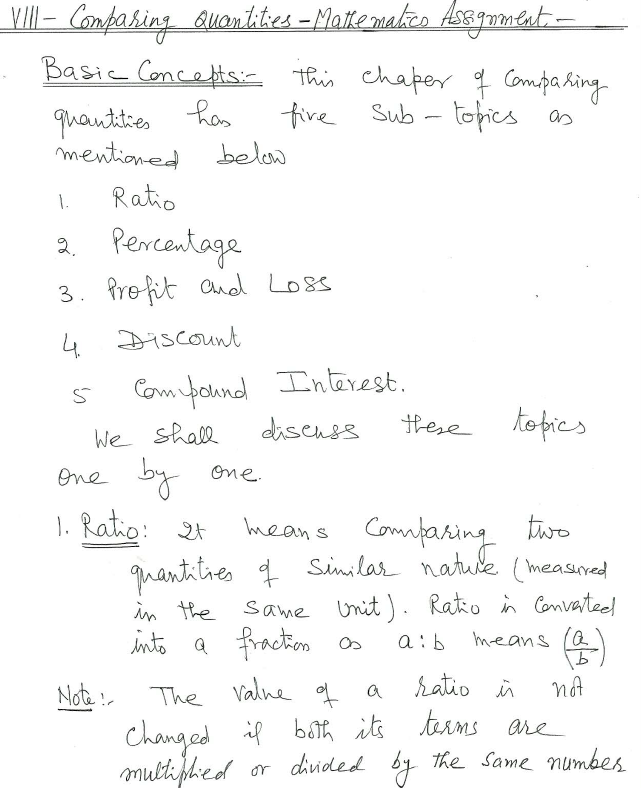 VIII - Comparing Quantities - Mathematics Assignment. -
Basic Concepts:- This chaper of Comparing
quantities has five Sub - topics as
mentioned below
1. Ratio
2. Percentage
3. Profit and Loss
4. Discount
5 Compound Interest.
We shall discuss these topics
one by one.
1. Ratio: It means Comparing two
quantities of Similar nature (measured
in the same Unit). Ratio is Converted
into a fraction as a:b means (a/b)
Note:- The value of a ratio is not
Changed if both its terms are
multiplied or divided by the same number